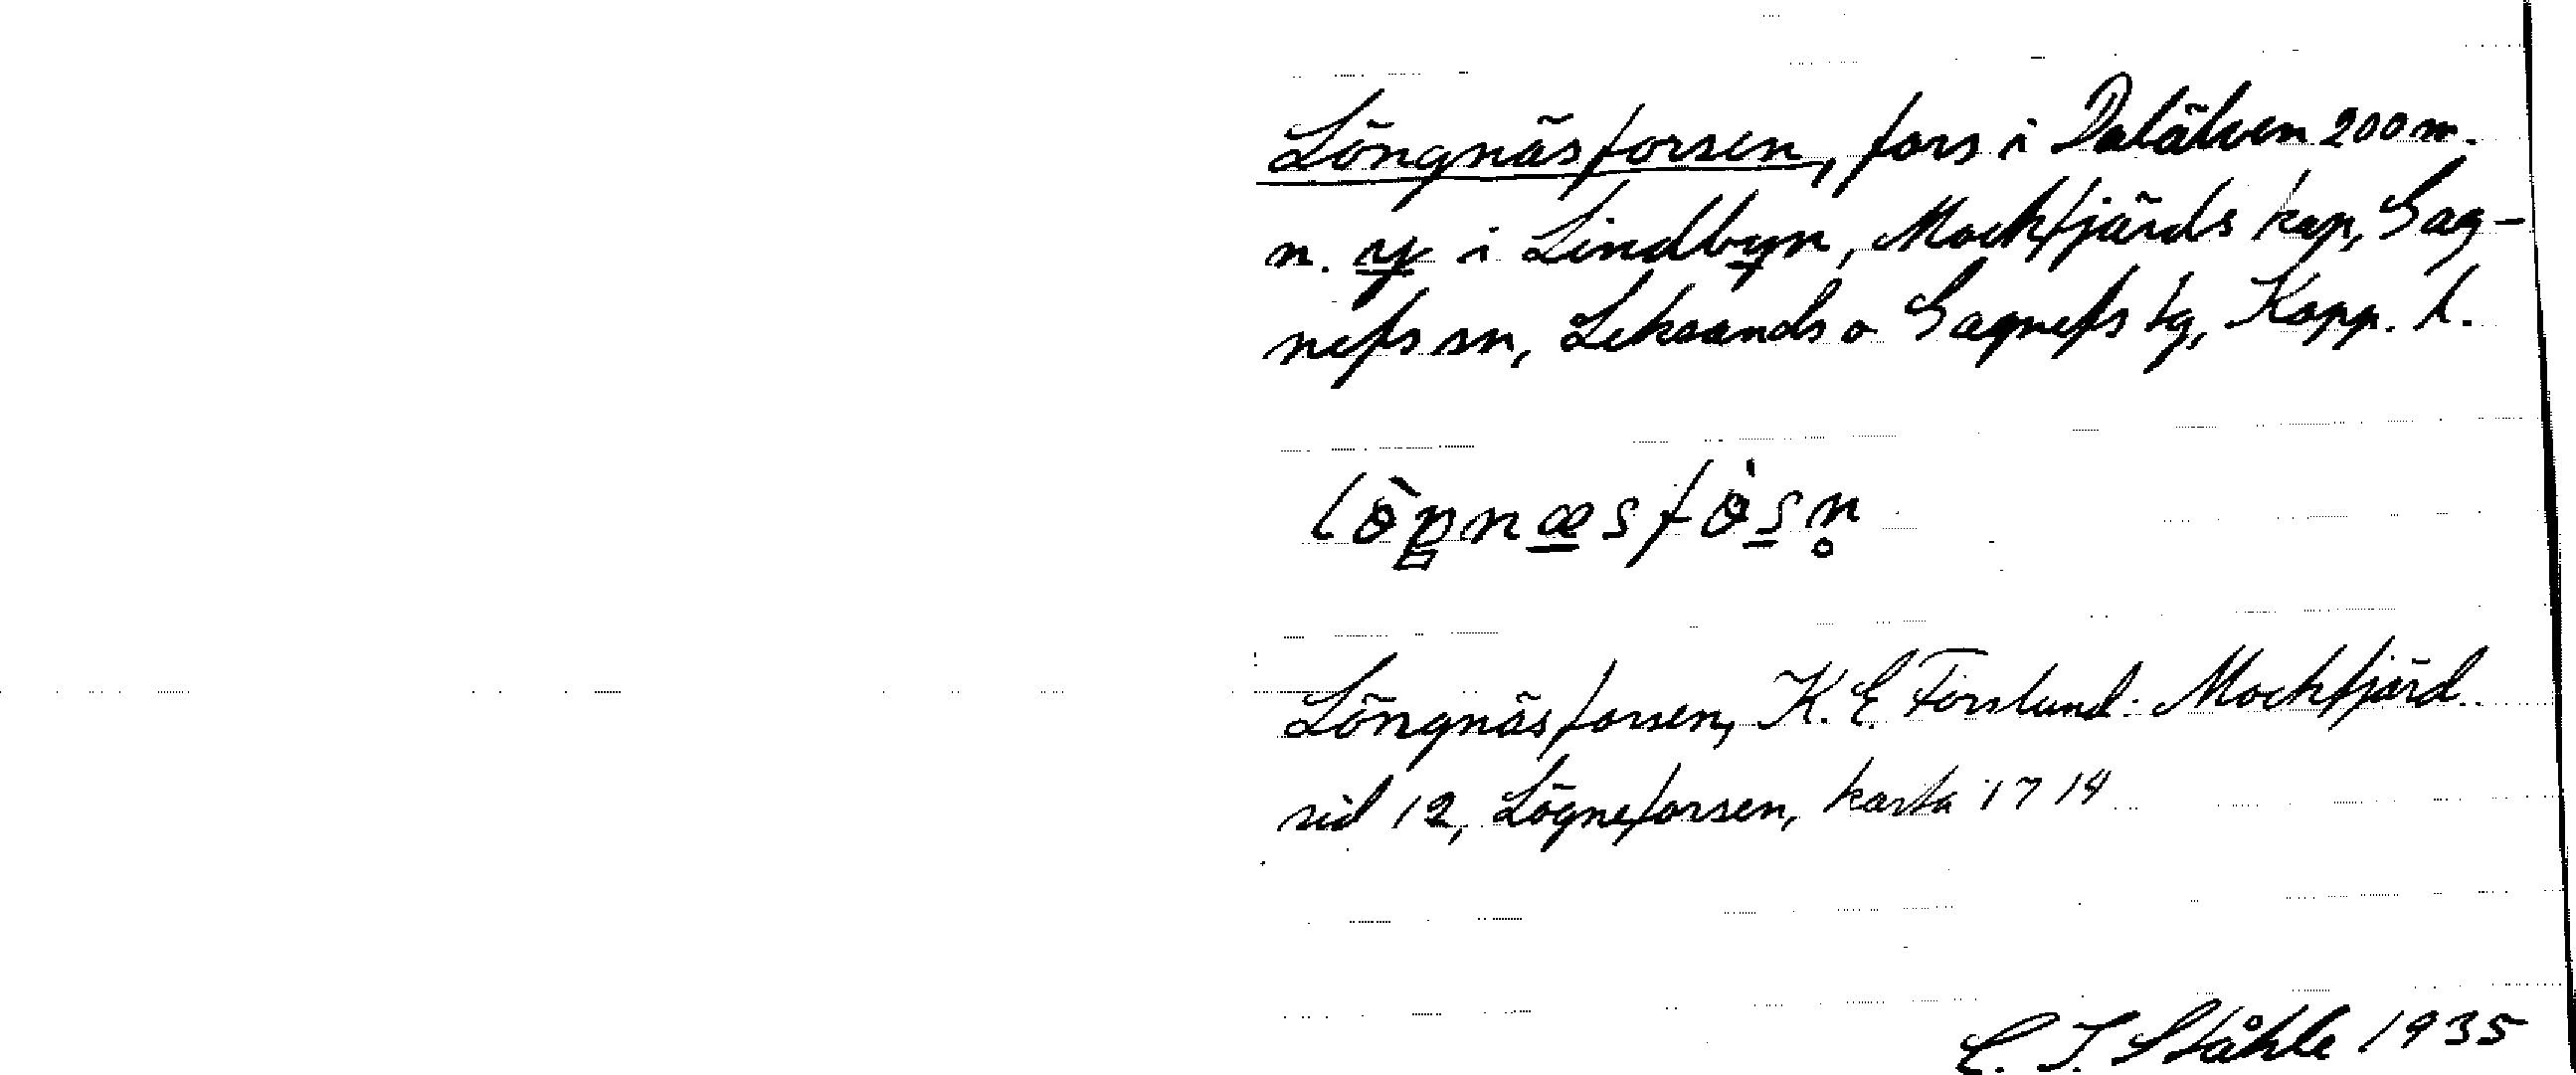 Löngnäsforsen, fors i Dalälven 200 m.
n. y i Lindbyn, Mockfjärds kap, Gag-
nefs sn, Leksands o Gagnefs tg, Kopp. l.
Löngnäsforsen, K. E. Forslund: Mockfjärd
sid 12, Lögneforsen, karta 1714
C. I. Ståhle 1935